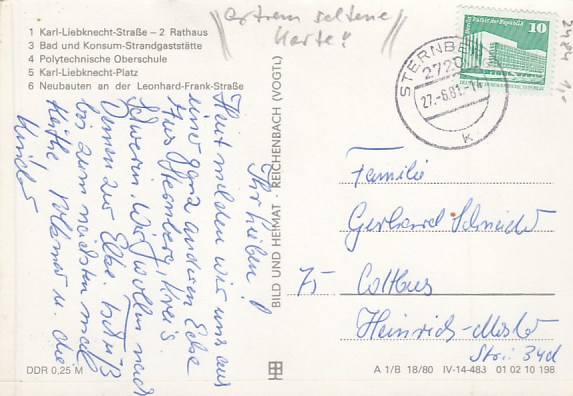 1 Karl-Liebknecht-Straße – 2 Rathaus
3 Bad und Konsum-Strandgaststätte
4 Polytechnische Oberschule
5 Karl-Liebknecht-Platz
6 Neubauten an der Leonhard-Frank-Straße
extrem seltene
Karte"
Palast der Republik 10
2484 1,-
STERNBE
2720
27.-6.81.-14
K
Ihr Lieben!
Heut melden wir uns aus
einer ganz anderen Ecke
Aus Sternberg, Kreis
Schwerin. Wir wollen nach
zur Elbe.
bis zum nächsten mal
Volkmar u. die
Kinder
BILD UND HEIMAT · REICHENBACH (VOGTL)
Familie
Gerhard Schneider
75 Cottbus
Heinrich-
Str. 34d
DDR 0,25 M
A 1/B 18/80 IV-14-483 01 02 10 198